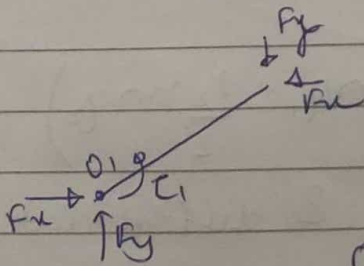 Fy
Fx
O1
τ1
Fx
Fy